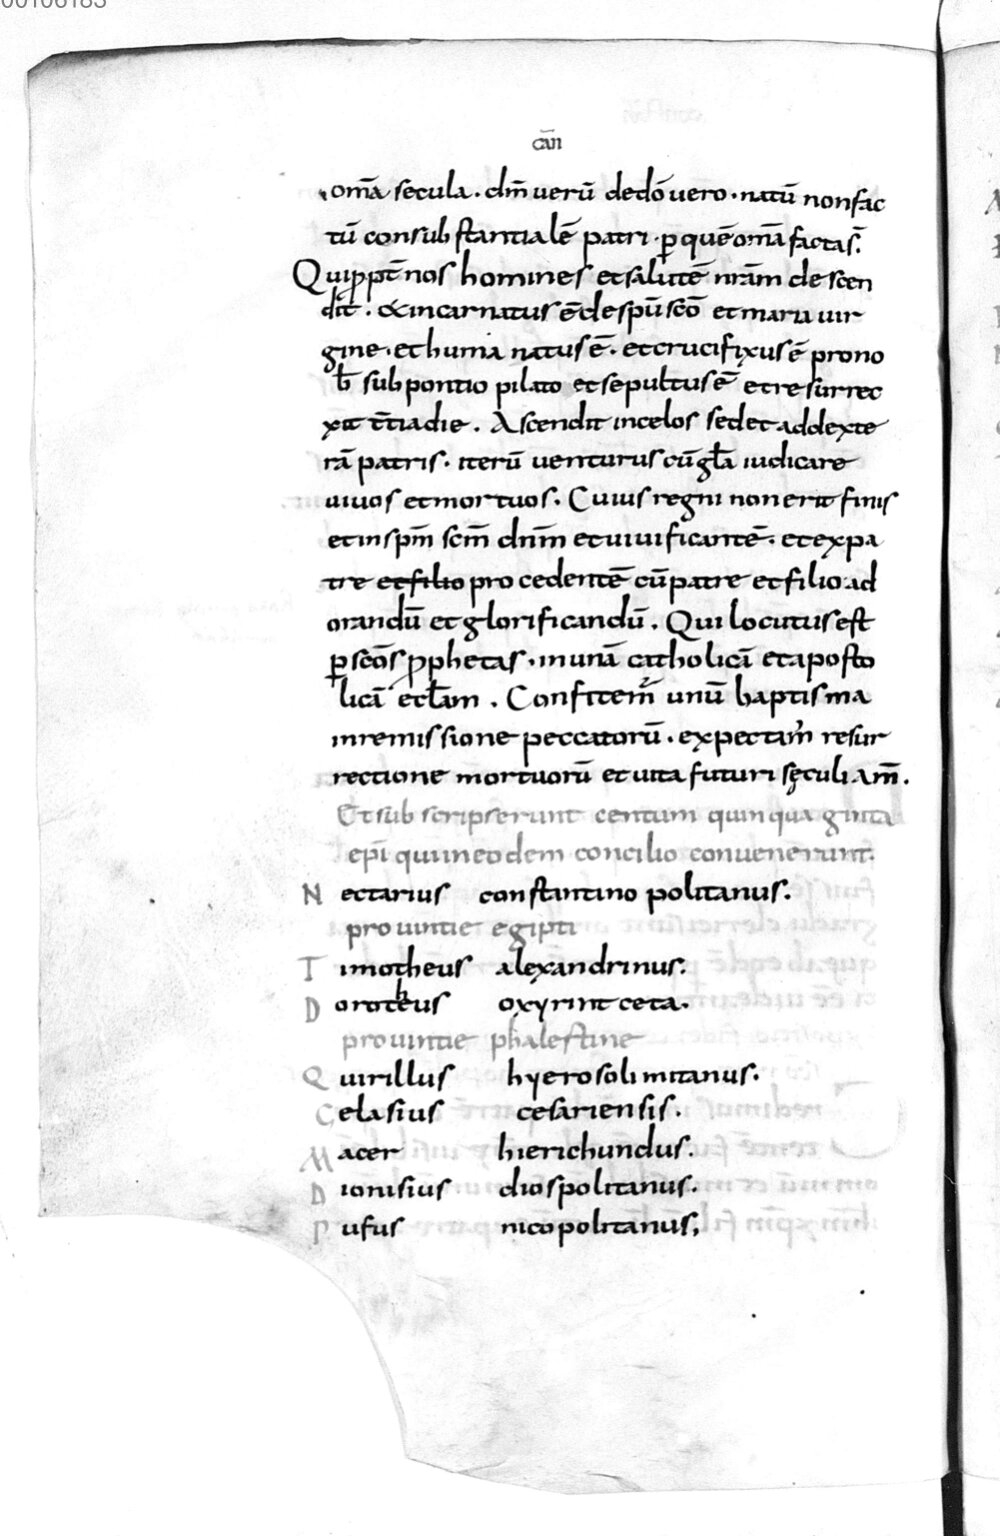 00106183
can
om̄a secula. dm̄ uerū dedō uero. natū nonfac
tū consubstantialē patri. ꝑ quē om̄a facta s̄.
Qui ꝓpt̄ nos homines et salutē nr̄am descen
dit. & incarnatus ē de spū sc̄o et maria uir
gine. et humanatus ē. et crucifixus ē pro no
b̄ sub pontio pilato et sepultus ē et resurrec
xit t̄tia die. Ascendit in celos sedet ad dexte
rā patris. iterū uenturus cū gl̄a iudicare
uiuos et mortuos. Cuius regni non erit finis
et in spm̄ scm̄ dnm̄ et uiuificantē. et ex pa
tre et filio procedentē cū patre et filio ad
orandū et glorificandū. Qui locutus est
ꝑ scōs ꝓphetas. in unā catholicā et aposto
licā eccl̄am. Confitem̄ unū baptisma
in remissione peccatorū. expectam̄ resur
rectione mortuorū et uita futuri sęculi am̄.
Et subscripserunt centum quinquaginta
ep̄i qui in eodem concilio conuenerunt.
Nectarius constantinopolitanus.
prouintie egipti
Timotheus alexandrinus.
Doroteus oxyrintceta.
h
prouintie phalestine
Quirillus hyerosolimitanus.
Celasius cesariensis.
Macer hierichundus.
Dionisius diospolitanus.
Rufus nicopolitanus;